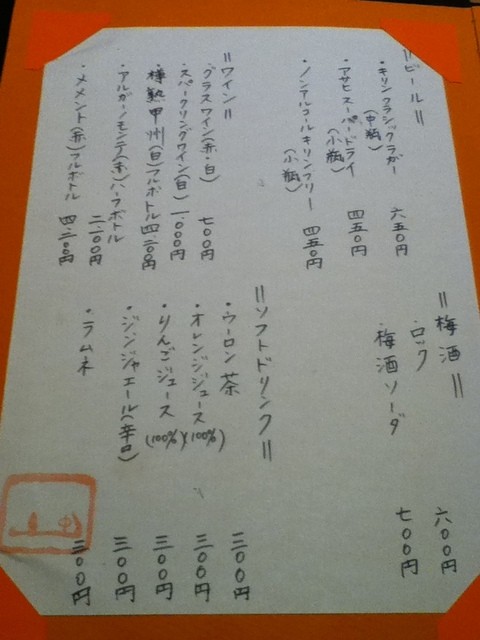 ＝ビール＝
・キリンクラシックラガー（中瓶） 六五〇円
・アサヒスーパードライ（小瓶） 四五〇円
・ノンアルコールキリンフリー（小瓶） 四五〇円
＝ワイン＝
・グラスワイン（赤・白） 七〇〇円
・スパークリングワイン（白） 一、〇〇〇円
・樽熟甲州（白）フルボトル 四、二〇〇円
・アルガーノモンテ（赤）ハーフボトル 二、一〇〇円
・メメント（赤）フルボトル 四、二〇〇円
＝梅酒＝
・ロック 六〇〇円
・梅酒ソーダ 七〇〇円
＝ソフトドリンク＝
・ウーロン茶 三〇〇円
・オレンジジュース（100％） 三〇〇円
・りんごジュース（100％） 三〇〇円
・ジンジャエール（辛口） 三〇〇円
・ラムネ 三〇〇円